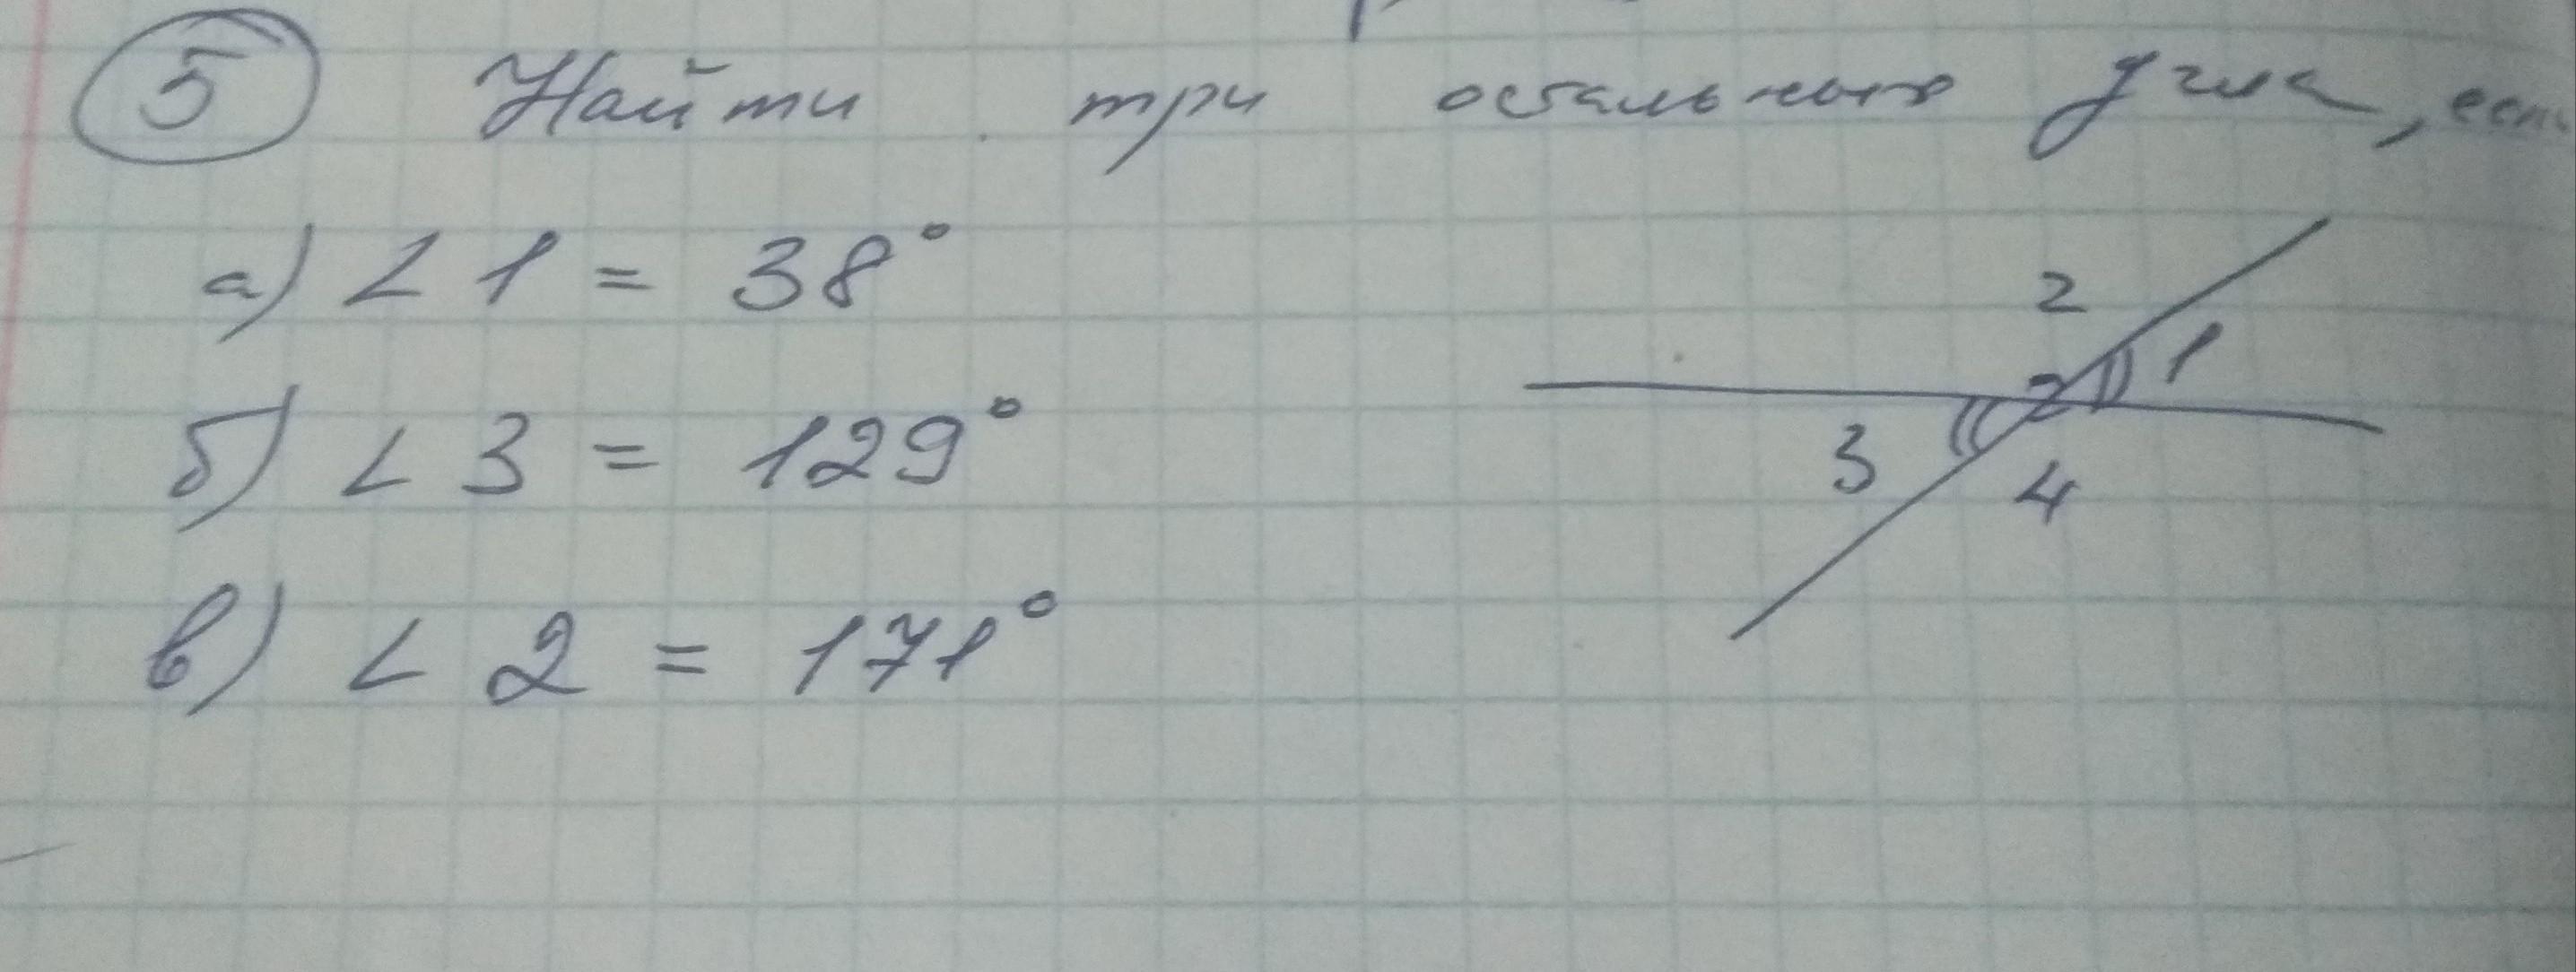 5 Найти три остальных угла, если
а) ∠1 = 38°
б) ∠3 = 129°
в) ∠2 = 171°
2
1
3
4